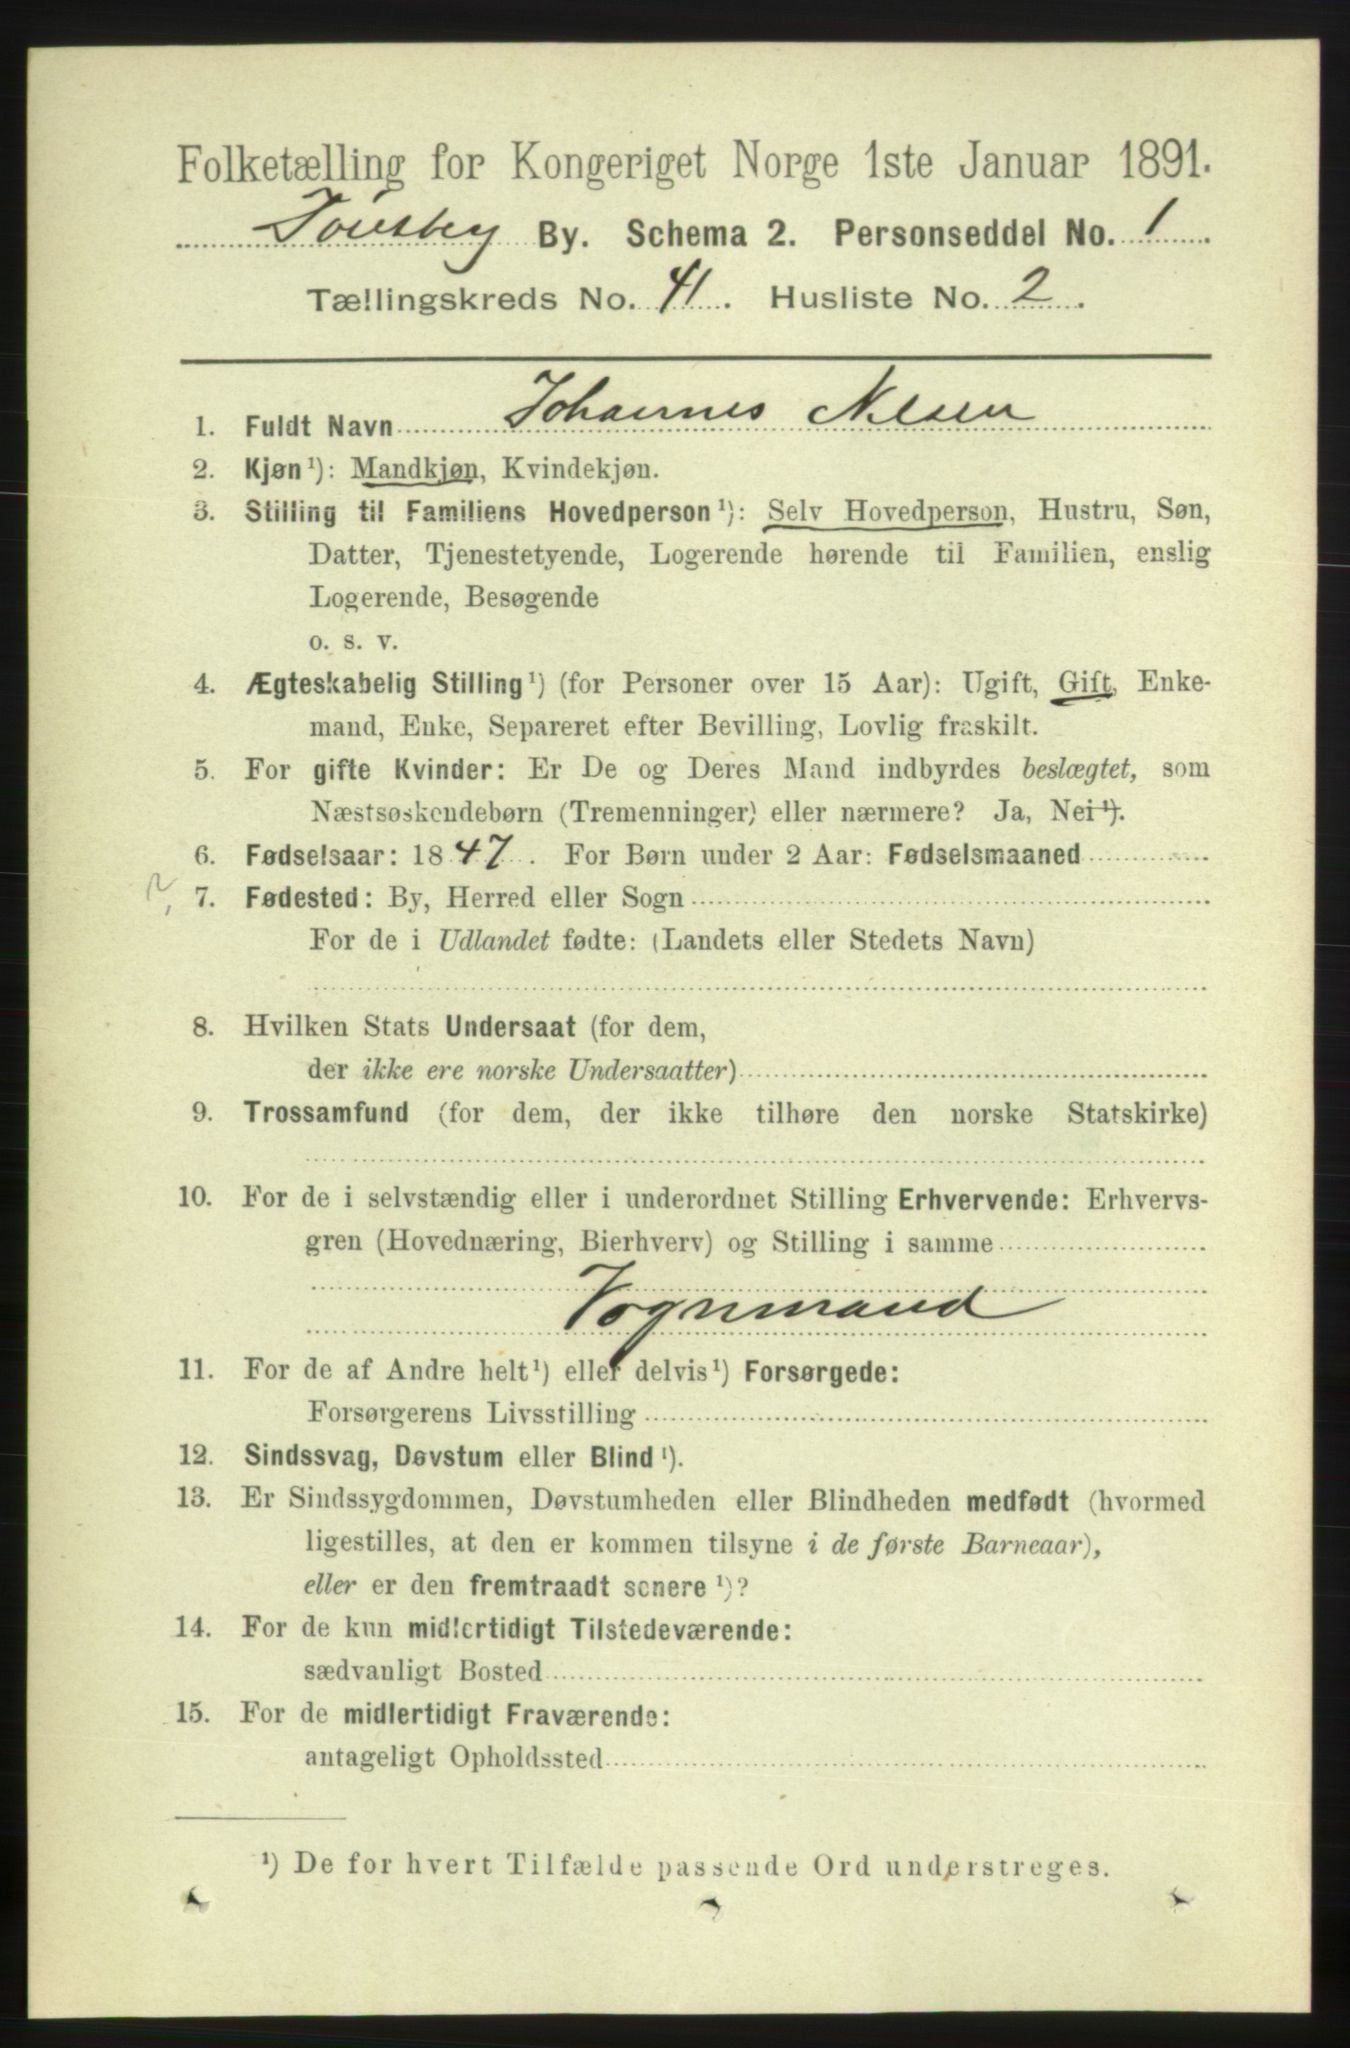 Folketælling for Kongeriget Norge 1ste Januar 1891.
Tønsberg By. Schema 2. Personseddel No. 1
Tællingskreds No. 41. Husliste No. 2.
1. Fuldt Navn Johannes Nelsen
2. Kjøn¹): Mandkjøn, Kvindekjøn.
3. Stilling til Familiens Hovedperson¹): Selv Hovedperson, Hustru, Søn,
Datter, Tjenestetyende, Logerende hørende til Familien, enslig
Logerende, Besøgende
o. s. v.
4. Ægteskabelig Stilling¹) (for Personer over 15 Aar): Ugift, Gift, Enke-
mand, Enke, Separeret efter Bevilling, Lovlig fraskilt.
5. For gifte Kvinder: Er De og Deres Mand indbyrdes beslægtet, som
Næstsøskendebørn (Tremenninger) eller nærmere? Ja, Nei¹).
6. Fødselsaar: 1847. For Børn under 2 Aar: Fødselsmaaned
7. Fødested: By, Herred eller Sogn
For de i Udlandet fødte: (Landets eller Stedets Navn)
8. Hvilken Stats Undersaat (for dem,
der ikke ere norske Undersaatter)
9. Trossamfund (for dem, der ikke tilhøre den norske Statskirke)
10. For de i selvstændig eller i underordnet Stilling Erhvervende: Erhvervs-
gren (Hovednæring, Bierhverv) og Stilling i samme
Vognmand
11. For de af Andre helt¹) eller delvis¹) Forsørgede:
Forsørgerens Livsstilling
12. Sindssvag, Døvstum eller Blind¹).
13. Er Sindssygdommen, Døvstumheden eller Blindheden medfødt (hvormed
ligestilles, at den er kommen tilsyne i de første Barneaar),
eller er den fremtraadt senere¹)?
14. For de kun midlertidigt Tilstedeværende:
sædvanligt Bosted
15. For de midlertidigt Fraværende:
antageligt Opholdssted
¹) De for hvert Tilfælde passende Ord understreges.